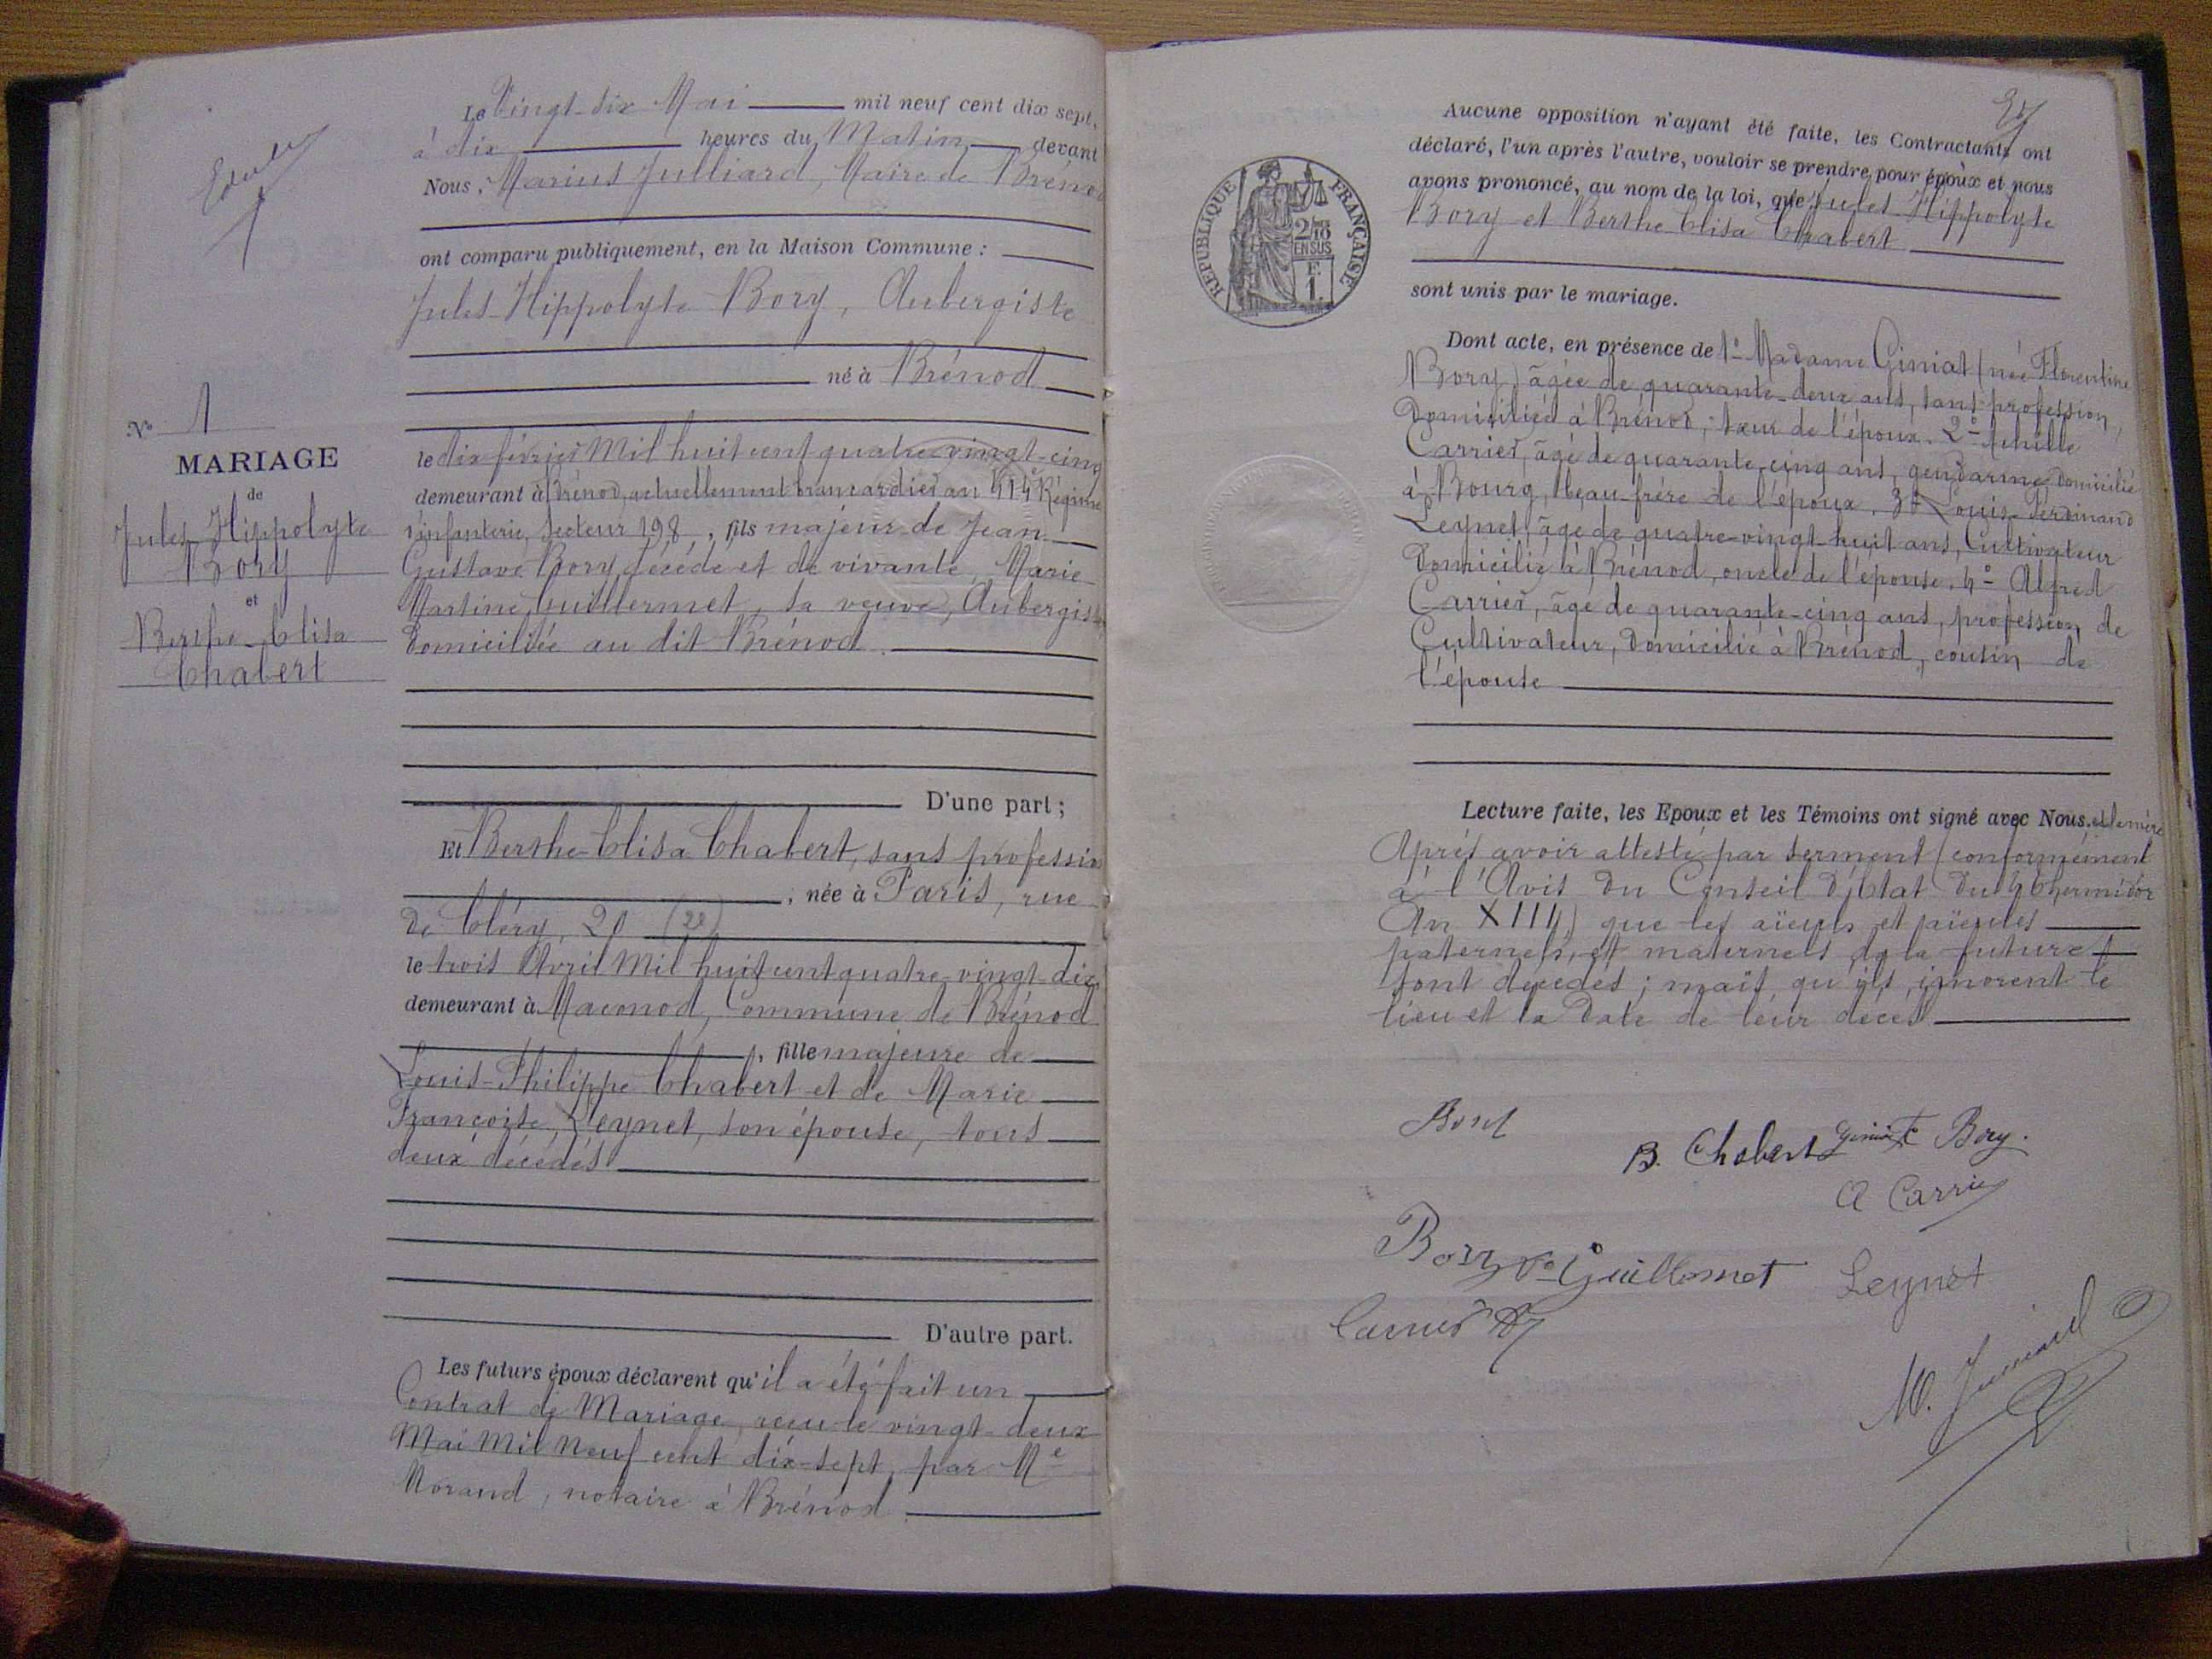 Le Vingt-six Mai mil neuf cent dix sept,
à dix heures du Matin devant
Nous, Marius Julliard, Maire de Brénod
ont comparu publiquement, en la Maison Commune :
Jules-Hippolyte Bory, Aubergiste
né à Brénod
le dix février Mil huit cent quatre-vingt-cinq
demeurant à Brénod, actuellement brancardier au Régime
d'infanterie, Secteur 198, fils majeur de Jean
Gustave Bory, décédé et de vivante, Marie
Martine Guillermet, sa veuve, Aubergiste
domiciliée au dit Brénod.
D'une part ;
N° 1
MARIAGE
de
Jules Hippolyte
Bory
et
Berthe-Elisa
Chabert
Et Berthe-Elisa Chabert, sans profession
, née à Paris, rue
de Cléry, 20 (22)
le trois Avril Mil huit cent quatre-vingt-dix
demeurant à Maconod, Commune de Brénod
, fille majeure de
Louis-Philippe Chabert et de Marie
Françoise Leynet, son épouse, tous
deux décédés
D'autre part.
Les futurs époux déclarent qu'il a été fait un
Contrat de Mariage, reçu le vingt-deux
Mai Mil Neuf cent dix-sept, par Me
Morand, notaire à Brénod
Aucune opposition n'ayant été faite, les Contractants ont
déclaré, l'un après l'autre, vouloir se prendre pour époux et nous
avons prononcé, au nom de la loi, que Jules-Hippolyte
Bory et Berthe Elisa Chabert
sont unis par le mariage.
REPUBLIQUE FRANÇAISE
2/10
EN SUS
F.
1.
Dont acte, en présence de 1° Madame Giniat (née Florentine
Bory) âgée de quarante-deux ans, sans profession,
domiciliée à Brénod, sœur de l'époux. 2° Achille
Carrier, âgé de quarante-cinq ans, gendarme domicilié
à Bourg, beau-frère de l'époux. 3° Louis-Ferdinand
Leynet, âgé de quatre-vingt-huit ans, Cultivateur
domicilié à Brénod, oncle de l'épouse. 4° Alfred
Carrier, âgé de quarante-cinq ans, profession de
Cultivateur, domicilié à Brénod, cousin de
l'épouse
Lecture faite, les Epoux et les Témoins ont signé avec Nous. et la mère
Après avoir attesté par serment (conformément
à l'Avis du Conseil d'Etat du 4 thermidor
An XIII) que les aïeuls et aïeules
paternels, et maternels de la future
sont décédés ; mais qu'ils ignorent le
lieu et la date de leur décès
B. Chabert Giniat Bory.
A Carrier
Bory Ve Guillermet Leynet
Carrier
M. Julliard